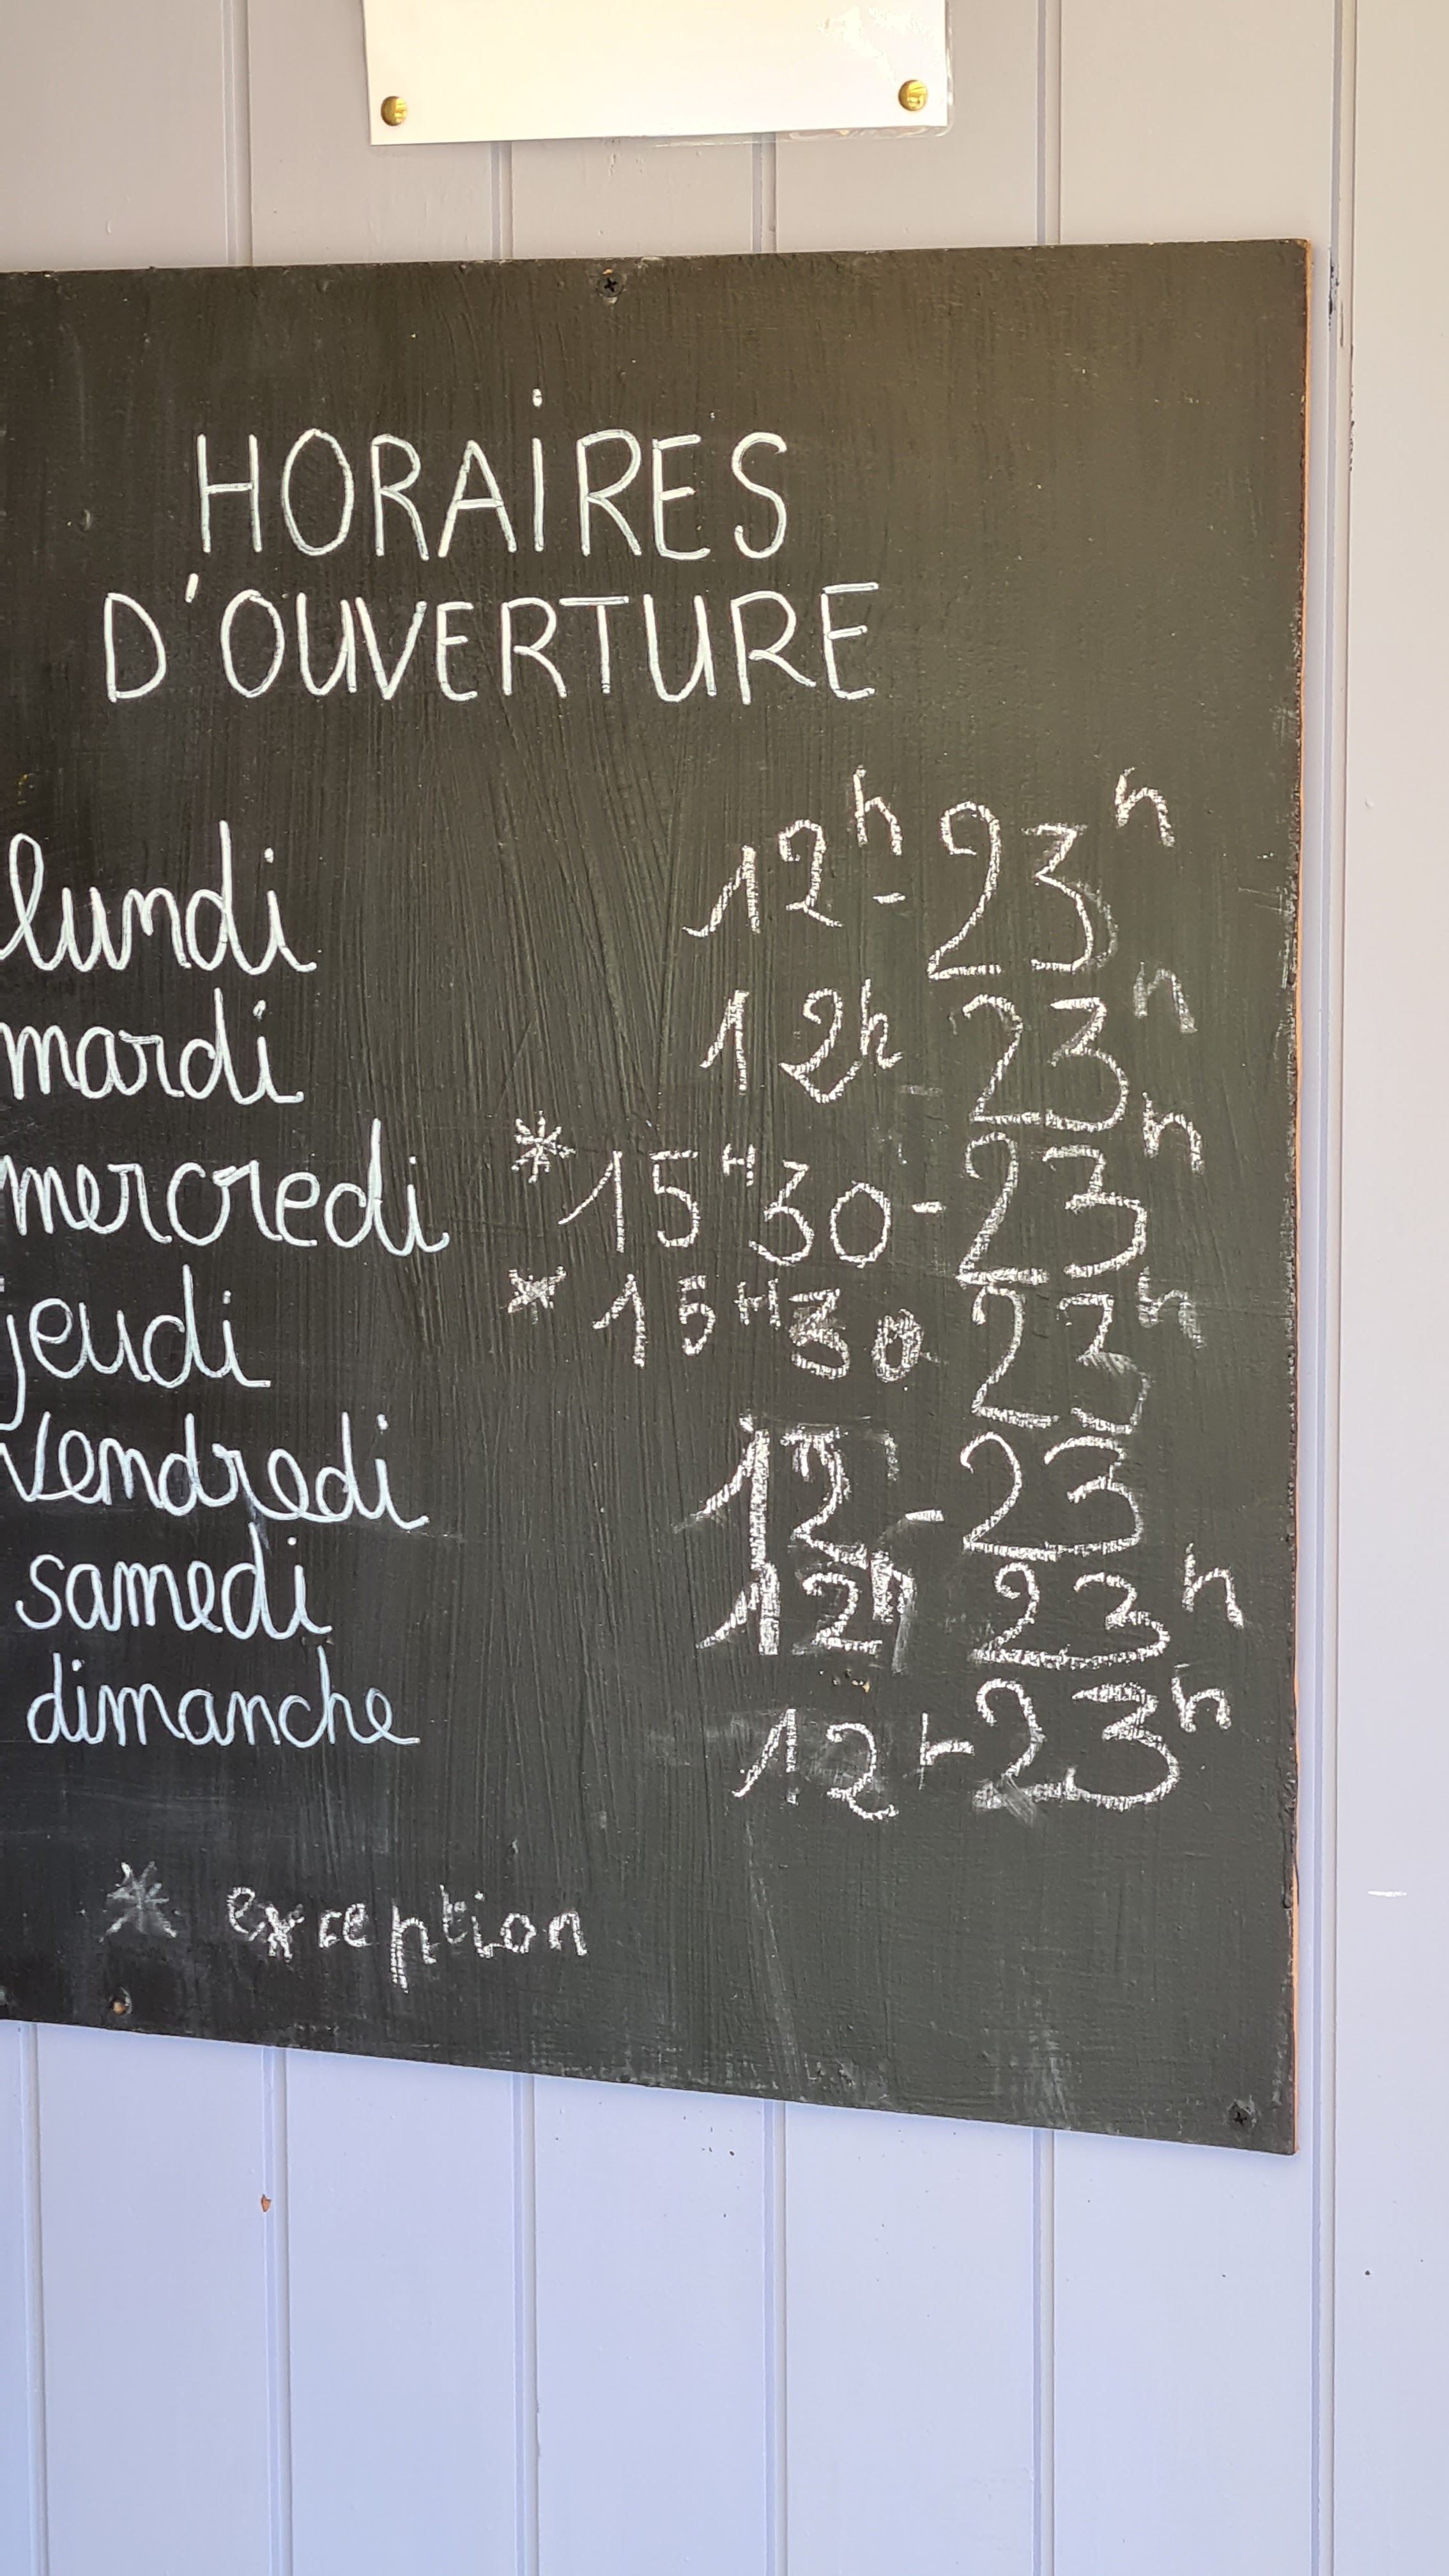 HORAIRES
D'OUVERTURE
lundi 12h - 23h
mardi 12h - 23h
mercredi *15H30 - 23h
jeudi * 15H30 23h
vendredi 12 - 23
samedi 12h 23h
dimanche 12h - 23h
* exception